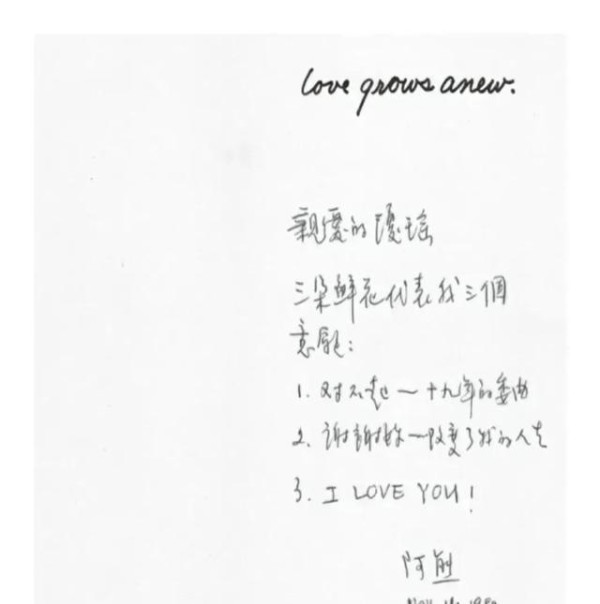 love grows anew.
親愛的瓊瑤
三朵鮮花代表我三個
意願:
1. 对不起一十九年的委曲
2. 謝謝妳一改變了我的人生
3. I LOVE YOU!
阿